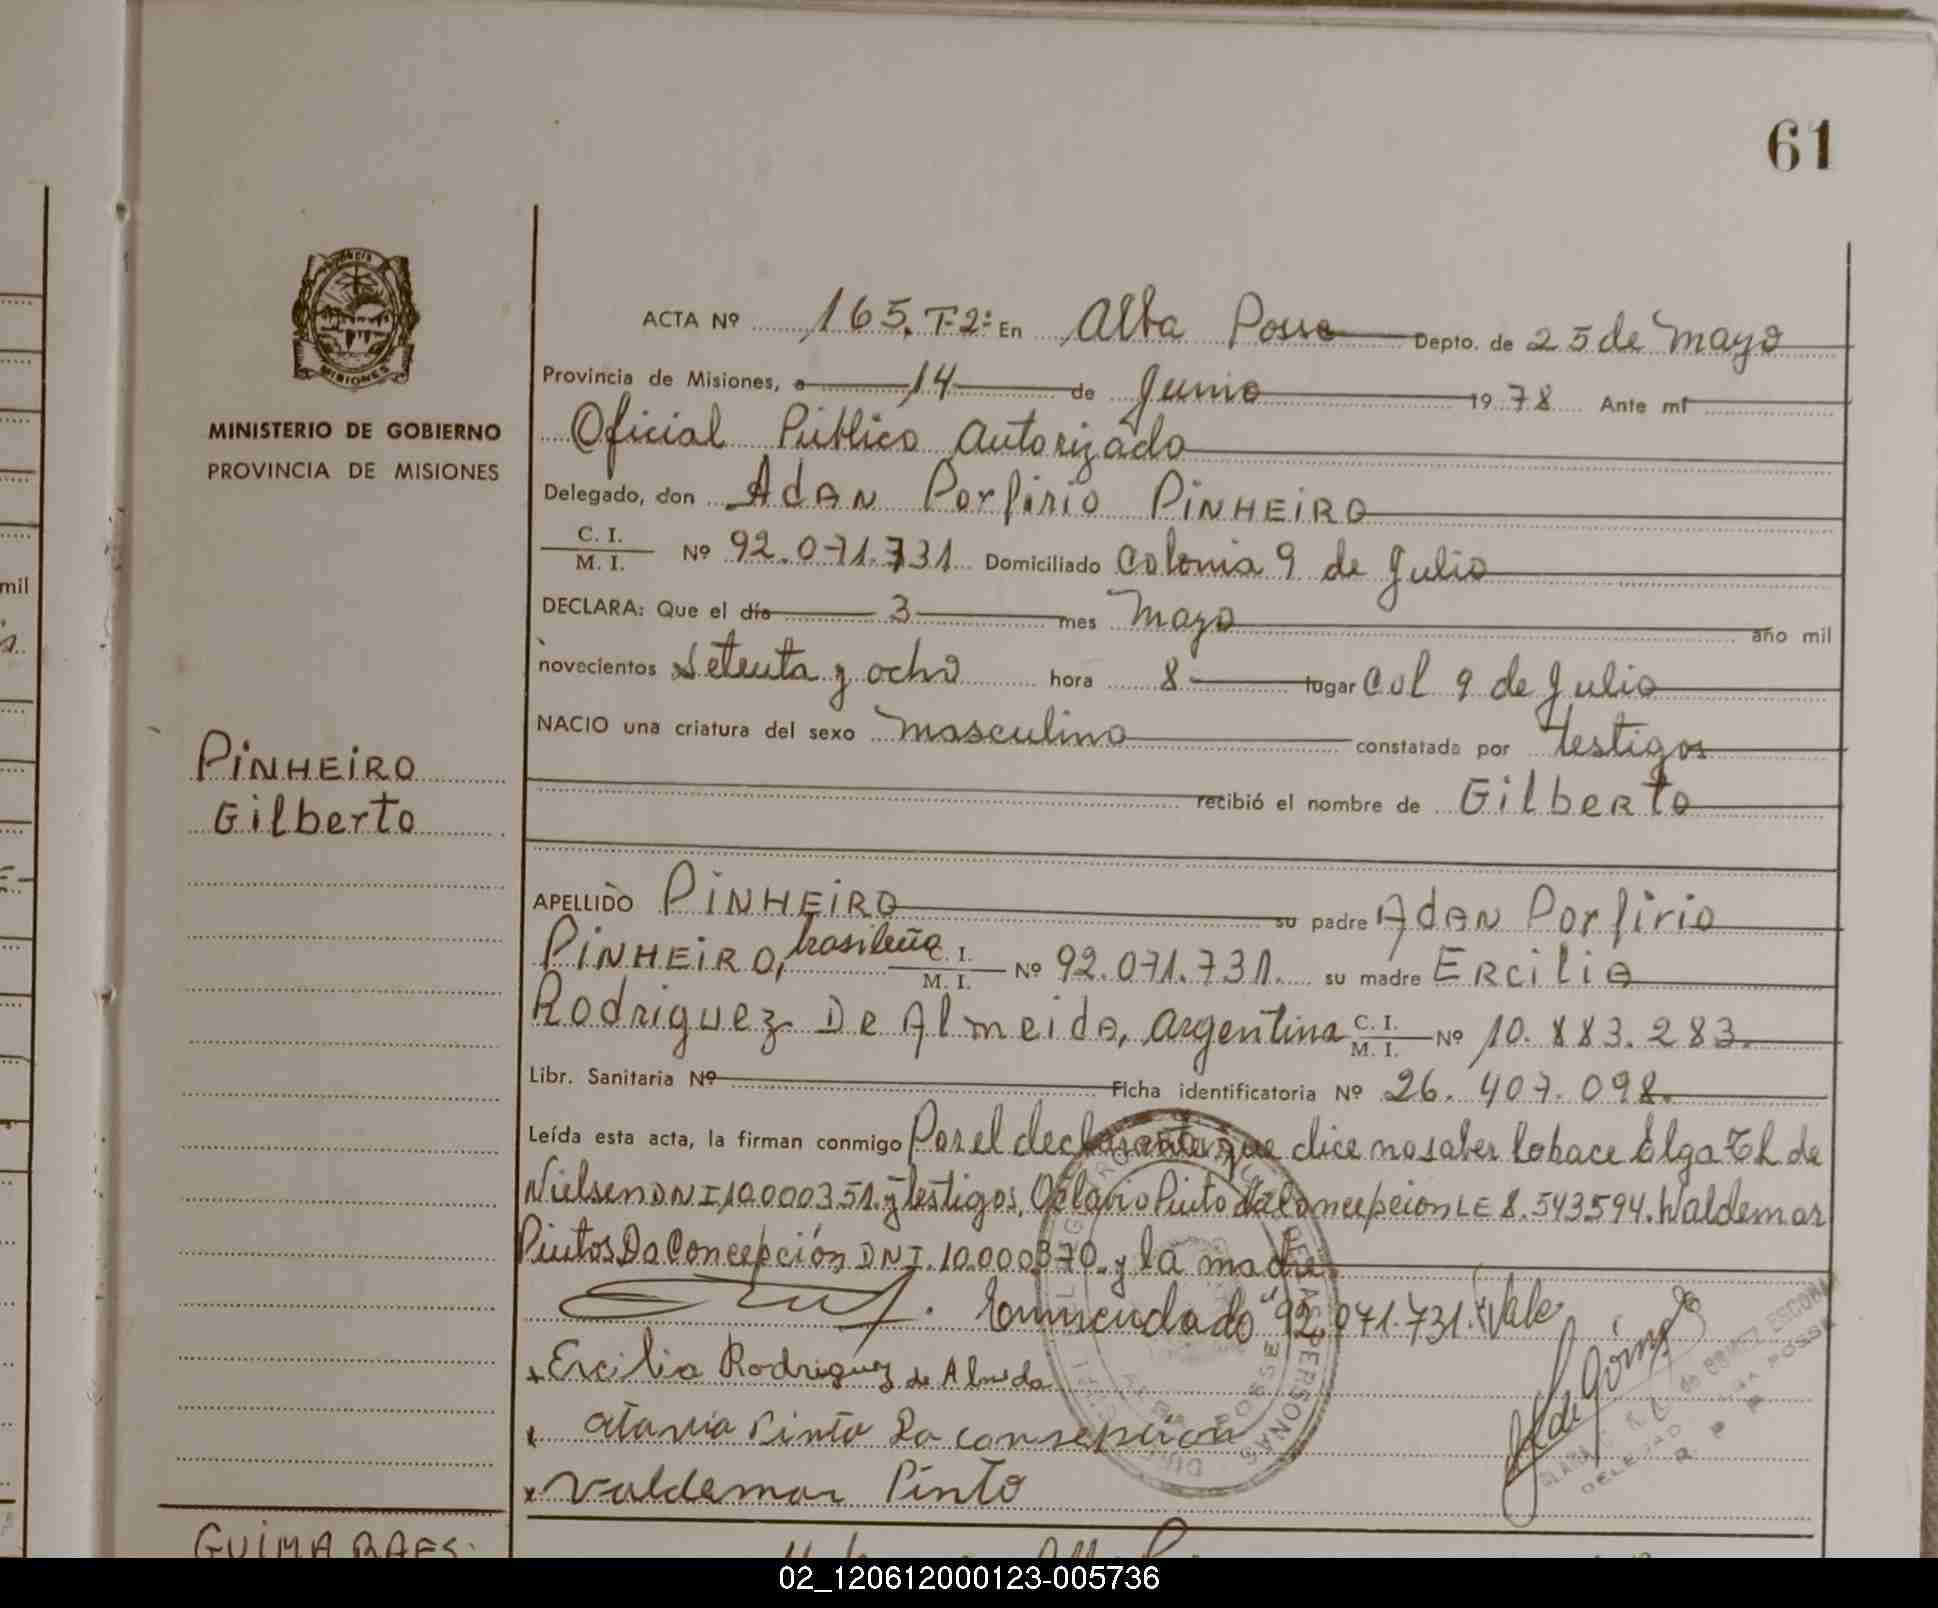 61
MISIONES
MINISTERIO DE GOBIERNO
PROVINCIA DE MISIONES
PINHEIRO
Gilberto
ACTA Nº 165. T-2º En Alba Posse Depto. de 25 de Mayo
Provincia de Misiones, a 14 de Junio 1978 Ante mí
Oficial Público Autorizado
Delegado, don Adan Porfirio PINHEIRO
C. I.
M. I. Nº 92.071.731 Domiciliado Colonia 9 de Julio
DECLARA: Que el día 3 mes Mayo año mil
novecientos Setenta y ocho hora 8 lugar Col 9 de Julio
NACIO una criatura del sexo Masculino constatada por Testigos
recibió el nombre de Gilberto
APELLIDO PINHEIRO su padre Adan Porfirio
PINHEIRO, brasileña C. I.
M. I. Nº 92.071.731. su madre Ercilia
Rodriguez De Almeida, Argentina C. I.
M. I. Nº 10.883.283.
Libr. Sanitaria Nº Ficha identificatoria Nº 26.407.098.
Leída esta acta, la firman conmigo Por el declarante que dice no saber lo hace Elga Th de
Nielsen DNI 10.000351. y testigos, Octavio Pinto Da Concepcion LE 8.543594. Waldemar
Pintos Da Concepción DNI. 10.000.370. y la madre
Enmendado "92.071.731." Vale
Ercilia Rodriguez de Almeida
otavio Pinto Da consepcion
Valdemar Pinto
PERSONAS
ALBA POSSE
DELEGADO
GUIMARAES
02_120612000123-005736